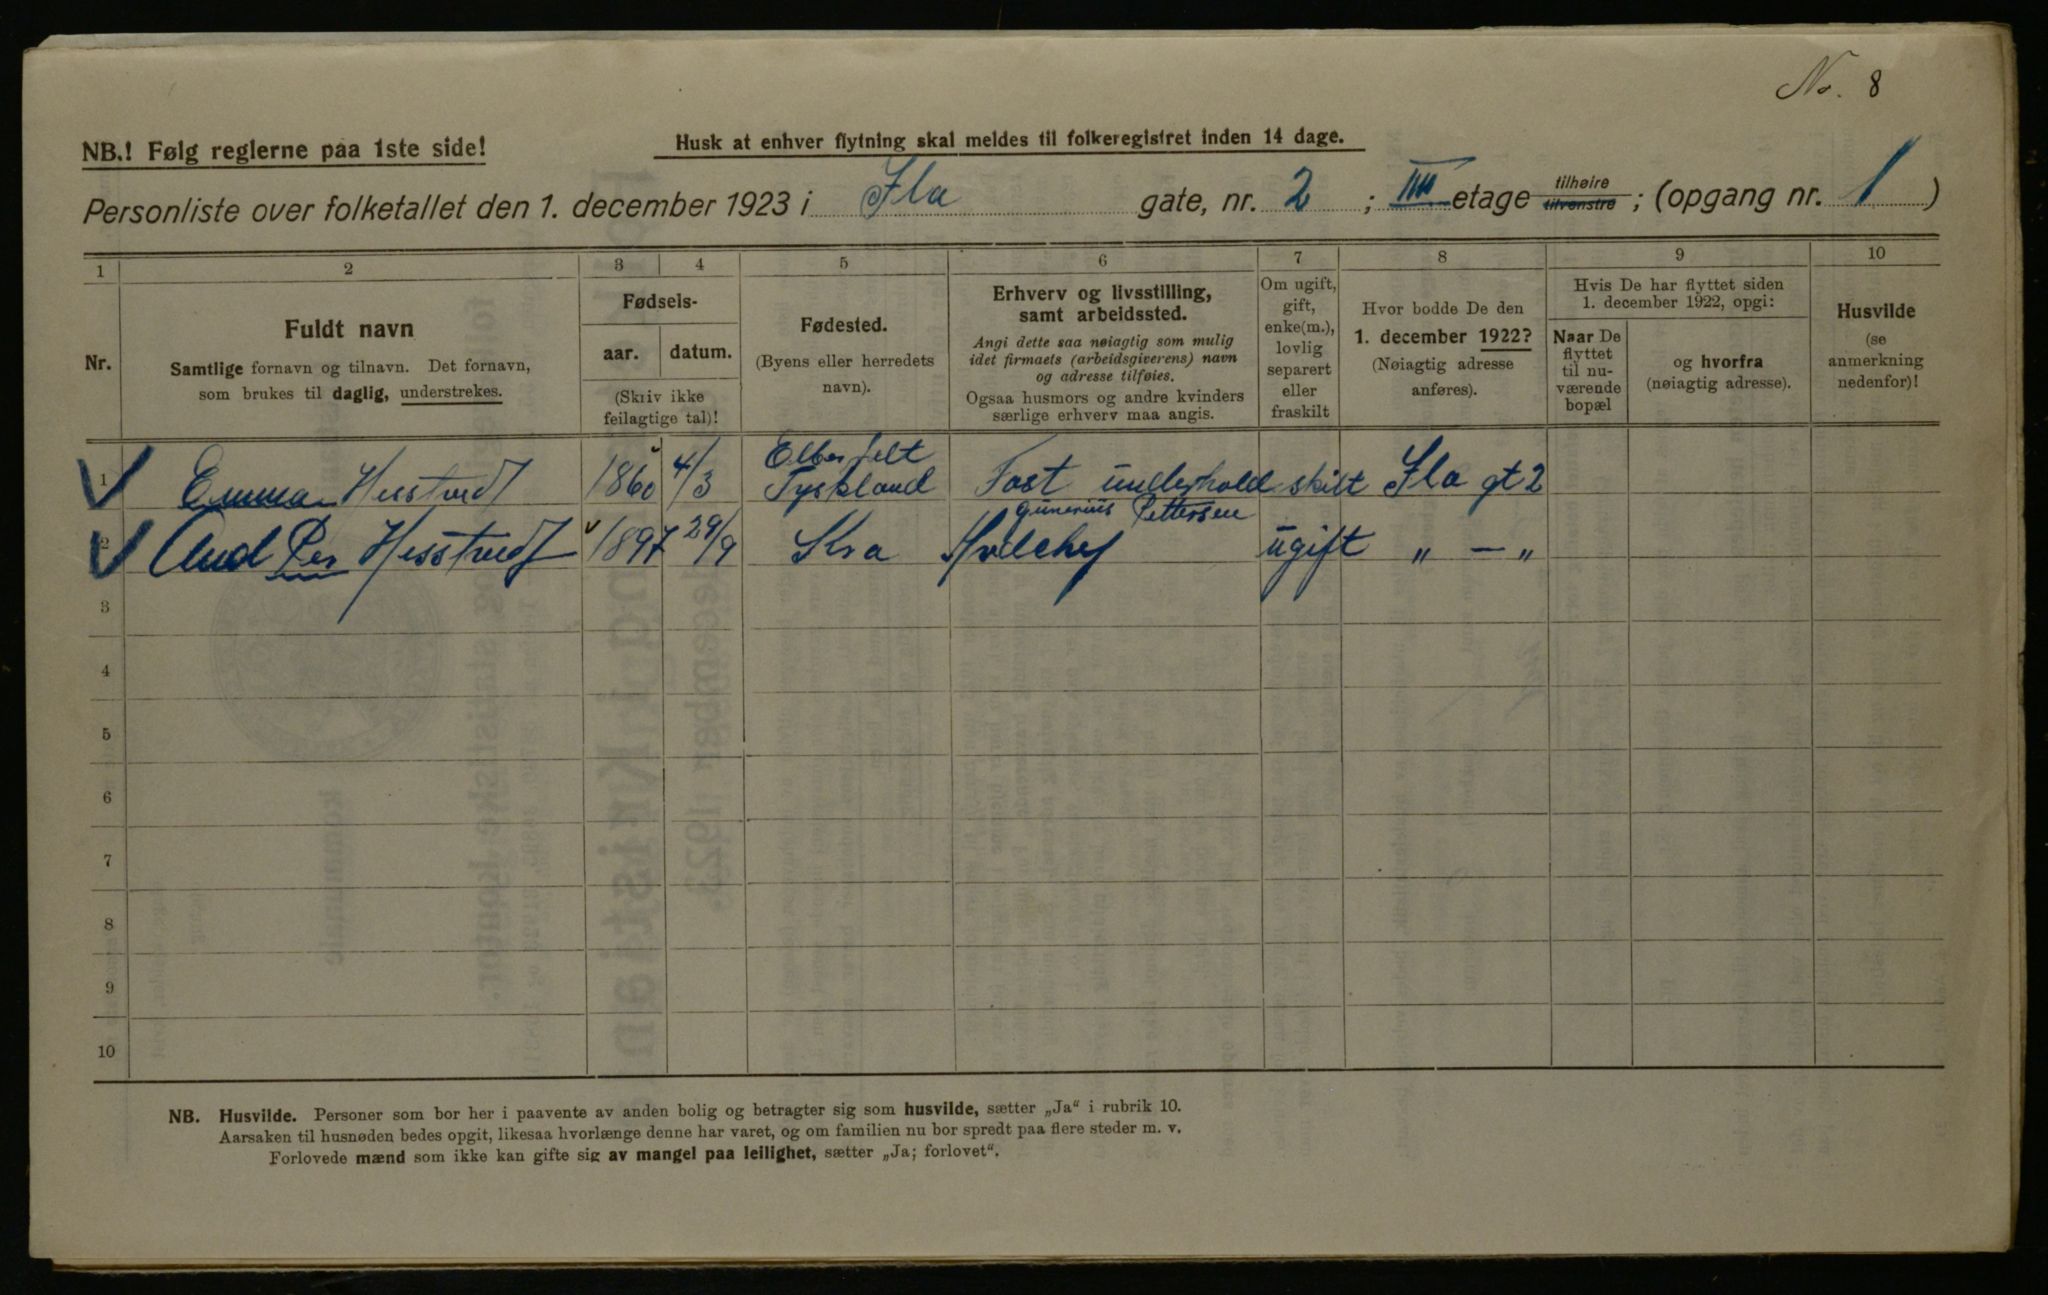 No. 8
NB.! Følg reglerne paa 1ste side!
Husk at enhver flytning skal meldes til folkeregistret inden 14 dage.
Personliste over folketallet den 1. december 1923 i Ila gate, nr. 2 ; IIII etage tilhøire tilvenstre ; (opgang nr. 1 )
1 2 3 4 5 6 7 8 9 10
Nr.
Fuldt navn
Samtlige fornavn og tilnavn. Det fornavn,
som brukes til daglig, understrekes.
Fødsels-
aar. datum.
(Skriv ikke
feilagtige tal)!
Fødested.
(Byens eller herredets
navn).
Erhverv og livsstilling,
samt arbeidssted.
Angi dette saa nøiagtig som mulig
idet firmaets (arbeidsgiverens) navn
og adresse tilføies.
Ogsaa husmors og andre kvinders
særlige erhverv maa angis.
Om ugift,
gift,
enke(m.),
lovlig
separert
eller
fraskilt
Hvor bodde De den
1. december 1922?
(Nøiagtig adresse
anføres).
Hvis De har flyttet siden
1. december 1922, opgi:
Naar De
flyttet
til nu-
værende
bopæl
og hvorfra
(nøiagtig adresse).
Husvilde
(se
anmerkning
nedenfor)!
1 Emma 1860 4/3 Elberfelt Tyskland Fast underhold skilt Ila gt 2
2 Per 1897 29/9 Kra Gunerius Pettersen ugift „ — „
3
4
5
6
7
8
9
10
NB. Husvilde. Personer som bor her i paavente av anden bolig og betragter sig som husvilde, sætter „Ja“ i rubrik 10.
Aarsaken til husnøden bedes opgit, likesaa hvorlænge denne har varet, og om familien nu bor spredt paa flere steder m. v.
Forlovede mænd som ikke kan gifte sig av mangel paa leilighet, sætter „Ja; forlovet“.